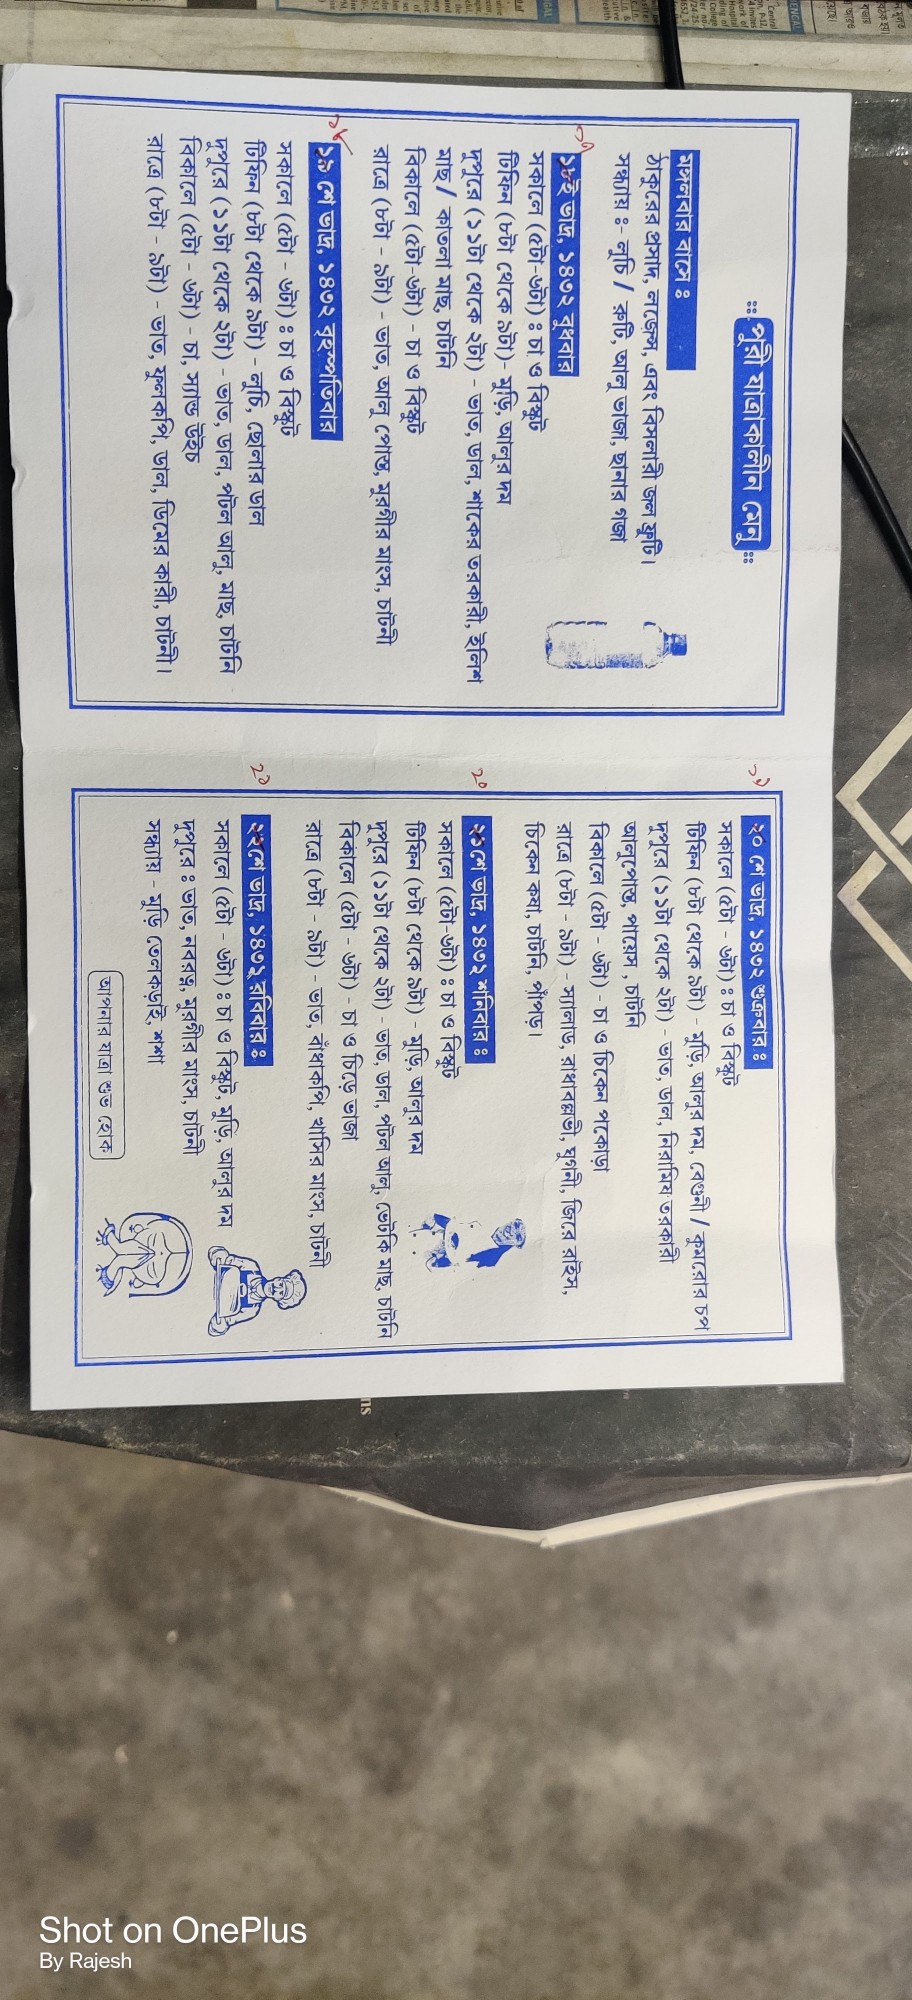 ::: পুরী যাত্রাকালীন মেনু :::
মঙ্গলবার বাসে ঃ
ঠাকুরের প্রসাদ, লজেন্স, এবং বিসলারী জল ফ্রুটি।
সন্ধ্যায় ঃ - লুচি / রুটি, আলু ভাজা, ছানার গজা
১৭
ই ভাদ্র, ১৪৩২ বুধবার
সকালে (৫টা-৬টা) ঃ চা ও বিস্কুট
টিফিন (৮টা থেকে ৯টা)- মুড়ি, আলুর দম
দুপুরে (১১টা থেকে ২টা) - ভাত, ডাল, শাকের তরকারী, ইলিশ
মাছ / কাতলা মাছ, চাটনি
বিকালে (৫টা-৬টা) - চা ও বিস্কুট
রাত্রে (৮টা - ৯টা) - ভাত, আলু পোস্ত, মুরগীর মাংস, চাটনী
১৮
শে ভাদ্র, ১৪৩২ বৃহস্পতিবার
সকালে (৫টা - ৬টা) ঃ চা ও বিস্কুট
টিফিন (৮টা থেকে ৯টা) - লুচি, ছোলার ডাল
দুপুরে (১১টা থেকে ২টা) - ভাত, ডাল, পটল আলু, মাছ, চাটনি
বিকালে (৫টা - ৬টা) - চা, স্যান্ড উইচ
রাত্রে (৮টা - ৯টা) - ভাত, ফুলকপি, ডাল, ডিমের কারী, চাটনী।
১৯
২০ শে ভাদ্র, ১৪৩২ শুক্রবার ঃ
সকালে (৫টা - ৬টা) ঃ চা ও বিস্কুট
টিফিন (৮টা থেকে ৯টা) - মুড়ি, আলুর দম, বেগুনী / কুমরোর চপ
দুপুরে (১১টা থেকে ২টা) - ভাত, ডাল, নিরামিষ তরকারী
আলুপোস্ত, পায়েস , চাটনি
বিকালে (৫টা - ৬টা) - চা ও চিকেন পকোড়া
রাত্রে (৮টা - ৯টা) - স্যালাড, রাধাবল্লভী, ঘুগনী, জিরে রাইস,
চিকেন কষা, চাটনি, পাঁপড়।
২০
শে ভাদ্র, ১৪৩২ শনিবার ঃ
সকালে (৫টা-৬টা) ঃ চা ও বিস্কুট
টিফিন (৮টা থেকে ৯টা) - মুড়ি, আলুর দম
দুপুরে (১১টা থেকে ২টা) - ভাত, ডাল, পটল আলু, ভেটকি মাছ, চাটনি
বিকালে (৫টা - ৬টা) - চা ও চিড়ে ভাজা
রাত্রে (৮টা - ৯টা) - ভাত, বাঁধাকপি, খাসির মাংস, চাটনী
২১
২২শে ভাদ্র, ১৪৩২ রবিবার ঃ
সকালে (৫টা - ৬টা) ঃ চা ও বিস্কুট, মুড়ি, আলুর দম
দুপুরে ঃ ভাত, নবরত্ন, মুরগীর মাংস, চাটনী
সন্ধ্যায় - মুড়ি তেলকড়াই, শশা
আপনার যাত্রা শুভ হোক
Shot on OnePlus
By Rajesh